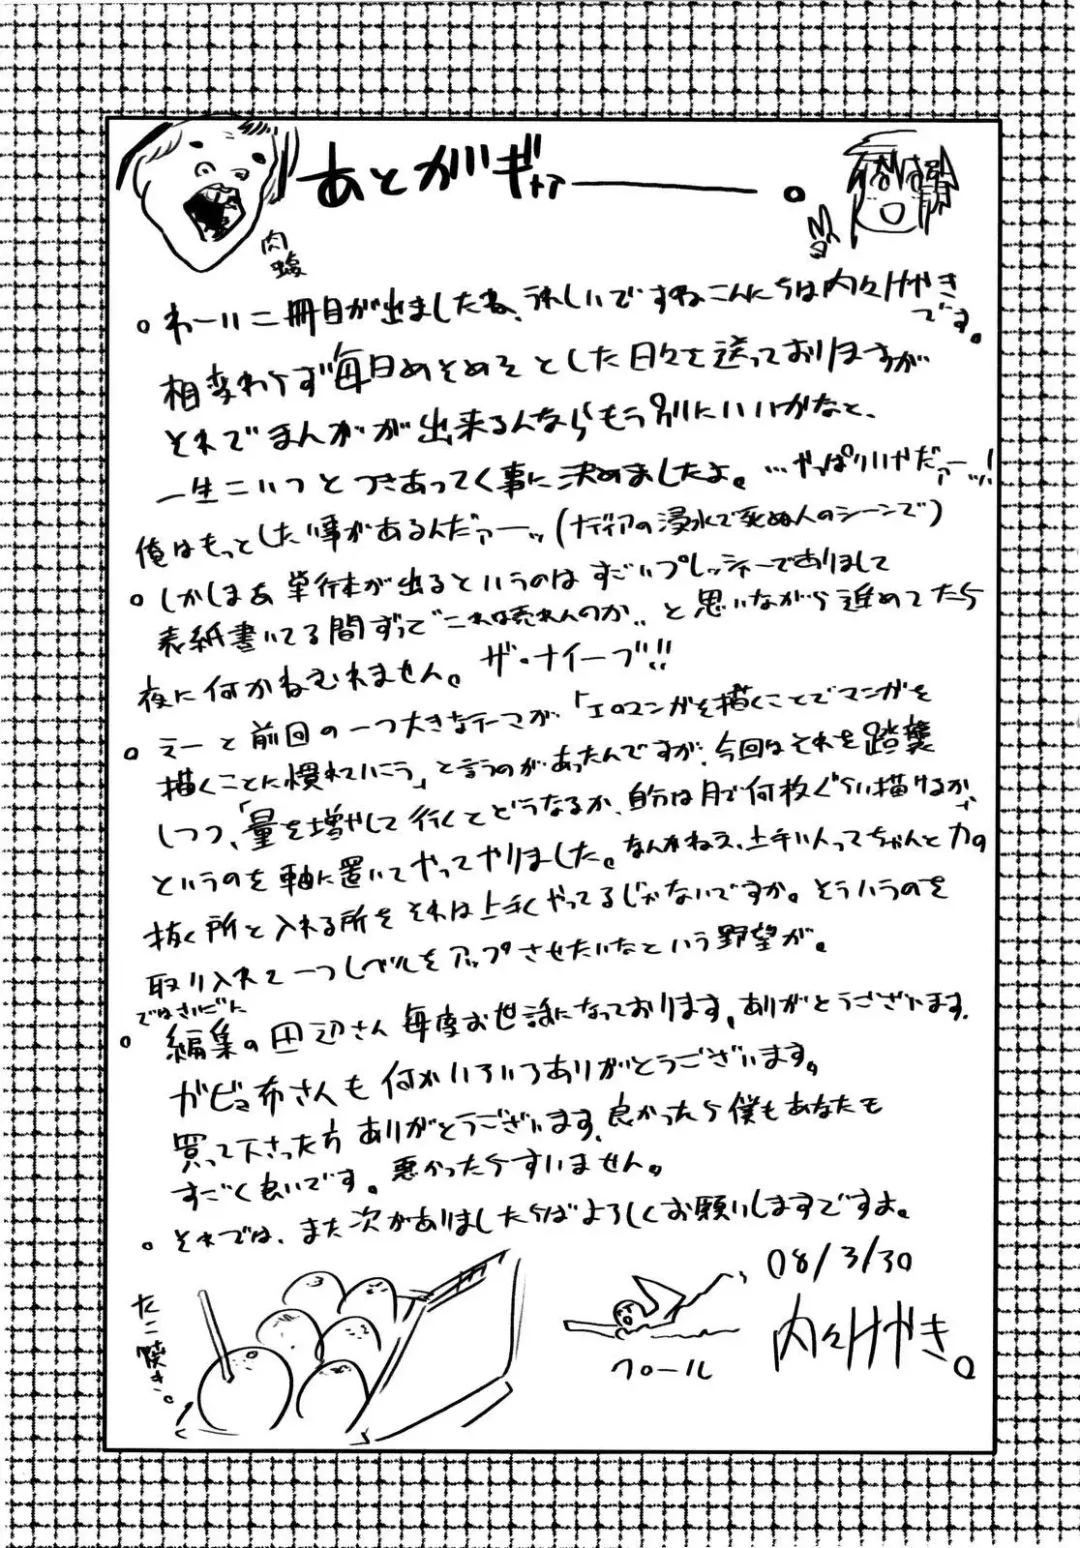 あとがギャァーーー。
肉
。わーい二冊目が出ましたね、うれしいですねこんにちは内々けやきです。
相変わらず毎日めそめそとした日々を送っておりますが
それでまんがが出来るんならもう別にいいかなと、
一生こいつとつきあってく事に決めましたよ。…やっぱりいやだァーッ!
俺はもっとしたい事があるんだァーッ(ナディアの浸水で死ぬ人のシーンで)
。しかしまあ単行本が出るというのはすごいプレッシャーでありまして
表紙書いてる間ずって“これは売れんのか..と思いながら進めてたら
夜に何かねむれません。ザ・ナイーブ!!
。えーと前回の一つ大きなテーマが「エロマンガを描くことでマンガを
描くことに慣れていこう」と言うのがあったんですが、今回はそれを踏襲
しつつ、「量を増やして行くとどうなるか、自分は月で何枚ぐらい描けるか」
というのを軸に置いてやってやりました。なんかねえ、上手い人ってちゃんと力の
抜く所と入れる所をそれは上手くやってるじゃないですか。そういうのを
取り入れて一つレベルをアップさせたいなという野望が。
ではさいごに
。編集の田辺さん毎度お世話になっております。ありがとうございます。
ガビョ布さんも何かいろいろありがとうございます。
買って下さった方ありがとうございます、良かったら僕もあなたも
すごく良いです。悪かったらすいません。
。それでは、また次がありましたらばよろしくお願いしますですよ。
08/3/30
内々けやき。
たこ焼き。
クロール